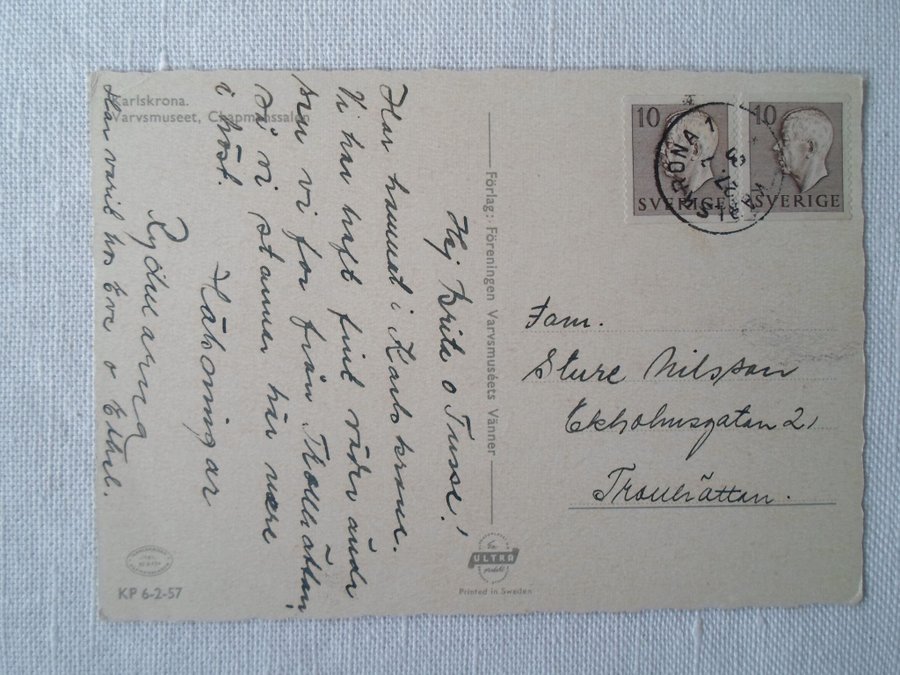 Karlskrona.
Varvsmuseet, Chapmanssalen
Hej Brita o Tusse!
Har hamnat i Karlskrona.
Vi har haft fint väder ända
sen vi for från Trollhättan
så vi stannar här nere
i höst.
Hälsningar
Har varit hos o Ethel.
Förlag: Föreningen Varvsmuséets Vänner
10 SVERIGE
10 SVERIGE
KARLSKRONA 1
Fam.
Sture Nilsson
Ekholmsgatan 21
Trollhättan.
KP 6-2-57
En
ULTRA
produkt
Printed in Sweden